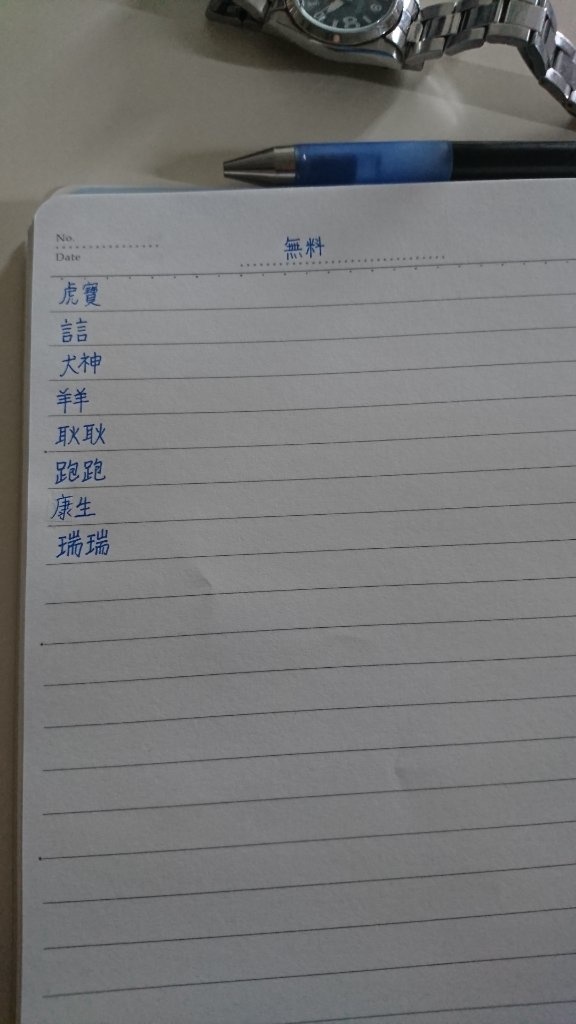 No.
Date
無料
虎寶
言言
犬神
羊羊
耿耿
跑跑
康生
瑞瑞